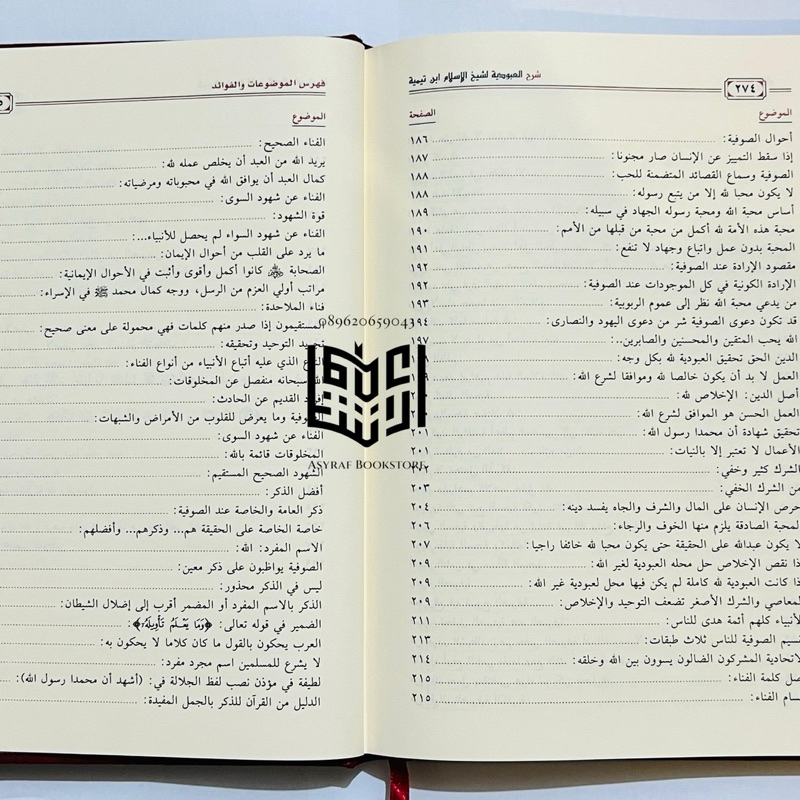 شرح العبودية لشيخ الإسلام ابن تيمية
٢٧٤
الموضوع الصفحة
أحوال الصوفية: ١٨٦
إذا سقط التمييز عن الإنسان صار مجنونا: ١٨٧
الصوفية وسماع القصائد المتضمنة للحب: ١٨٨
لا يكون محبا لله إلا من يتبع رسوله: ١٨٨
أساس محبة الله ومحبة رسوله الجهاد في سبيله: ١٨٩
محبة هذه الأمة لله أكمل من محبة من قبلها من الأمم: ١٩٠
المحبة بدون عمل واتباع وجهاد لا تنفع: ١٩١
مقصود الإرادة عند الصوفية: ١٩٢
الإرادة الكونية في كل الموجودات عند الصوفية: ١٩٢
من يدعي محبة الله نظر إلى عموم الربوبية: ١٩٣
قد تكون دعوى الصوفية شر من دعوى اليهود والنصارى: ١٩٤
الله يحب المتقين والمحسنين والصابرين..: ١٩٧
الدين الحق تحقيق العبودية لله بكل وجه:
العمل لا بد أن يكون خالصا لله وموافقا لشرع الله:
أصل الدين: الإخلاص لله:
العمل الحسن هو الموافق لشرع الله:
تحقيق شهادة أن محمدا رسول الله: ٢٠١
الأعمال لا تعتبر إلا بالنيات: ٢٠١
الشرك كثير وخفي:
من الشرك الخفي: ٢٠٣
حرص الإنسان على المال والشرف والجاه يفسد دينه: ٢٠٤
المحبة الصادقة يلزم منها الخوف والرجاء: ٢٠٦
لا يكون عبدالله على الحقيقة حتى يكون محبا لله خائفا راجيا: ٢٠٧
إذا نقص الإخلاص حل محله العبودية لغير الله: ٢٠٩
إذا كانت العبودية لله كاملة لم يكن فيها محل لعبودية غير الله: ٢٠٩
المعاصي والشرك الأصغر تضعف التوحيد والإخلاص: ٢٠٩
الأنبياء كلهم أئمة هدى للناس: ٢١١
تقسيم الصوفية للناس ثلاث طبقات: ٢١٣
الاتحادية المشركون الضالون يسوون بين الله وخلقه: ٢١٤
كلمة الفناء: ٢١٥
الفناء: ٢١٥
فهرس الموضوعات والفوائد
الموضوع
الفناء الصحيح:
يريد الله من العبد أن يخلص عمله لله:
كمال العبد أن يوافق الله في محبوباته ومرضياته:
الفناء عن شهود السوى:
قوة الشهود:
الفناء عن شهود السواء لم يحصل للأنبياء...:
ما يرد على القلب من أحوال الإيمان:
الصحابة ﷺ كانوا أكمل وأقوى وأثبت في الأحوال الإيمانية:
مراتب أولي العزم من الرسل، ووجه كمال محمد ﷺ في الإسراء:
فناء الملاحدة:
المستقيمون إذا صدر منهم كلمات فهي محمولة على معنى صحيح:
التوحيد وتحقيقه:
الذي عليه أتباع الأنبياء من أنواع الفناء:
سبحانه منفصل عن المخلوقات:
القديم عن الحادث:
الصوفية وما يعرض للقلوب من الأمراض والشبهات:
الفناء عن شهود السوى:
المخلوقات قائمة بالله:
الشهود الصحيح المستقيم:
أفضل الذكر:
ذكر العامة والخاصة عند الصوفية:
خاصة الخاصة على الحقيقة هم... وذكرهم... وأفضلهم:
الاسم المفرد: الله:
الصوفية يواظبون على ذكر معين:
ليس في الذكر محذور:
الذكر بالاسم المفرد أو المضمر أقرب إلى إضلال الشيطان:
الضمير في قوله تعالى: ﴿وَمَا يَعْلَمُ تَأْوِيلَهُ﴾:
العرب يحكون بالقول ما كان كلاما لا يحكون به:
لا يشرع للمسلمين اسم مجرد مفرد:
لطيفة في مؤذن نصب لفظ الجلالة في: (أشهد أن محمدا رسول الله):
الدليل من القرآن للذكر بالجمل المفيدة:
089620659043
ASYRAF BOOKSTORE